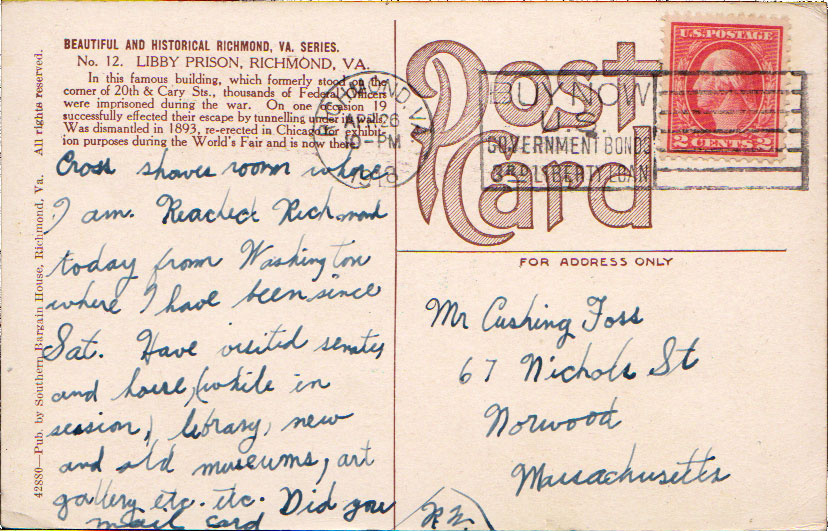 BEAUTIFUL AND HISTORICAL RICHMOND, VA. SERIES.
No. 12. LIBBY PRISON, RICHMOND, VA.
In this famous building, which formerly stood on the
corner of 20th & Cary Sts., thousands of Federal Officers
were imprisoned during the war. On one occasion 19
successfully effected their escape by tunnelling under its walls.
Was dismantled in 1893, re-erected in Chicago for exhibit-
ion purposes during the World's Fair and is now there.
Cross shows room where
I am. Reached Richmond
today from Washington
where I have been since
Sat. Have visited senate
and house, (while in
session,) library, new
and old museums, art
gallery etc. etc. Did you
mail card
42880—Pub. by Southern Bargain House, Richmond, Va. All rights reserved.
Post
Card
RICHMOND, VA.
APR 26
-PM
1918
BUY NOW
U.S.
GOVERNMENT BONDS
3RD LIBERTY LOAN
U.S. POSTAGE
2 CENTS 2
FOR ADDRESS ONLY
Mr Cushing Foss
67 Nichols St
Norwood
Massachusetts